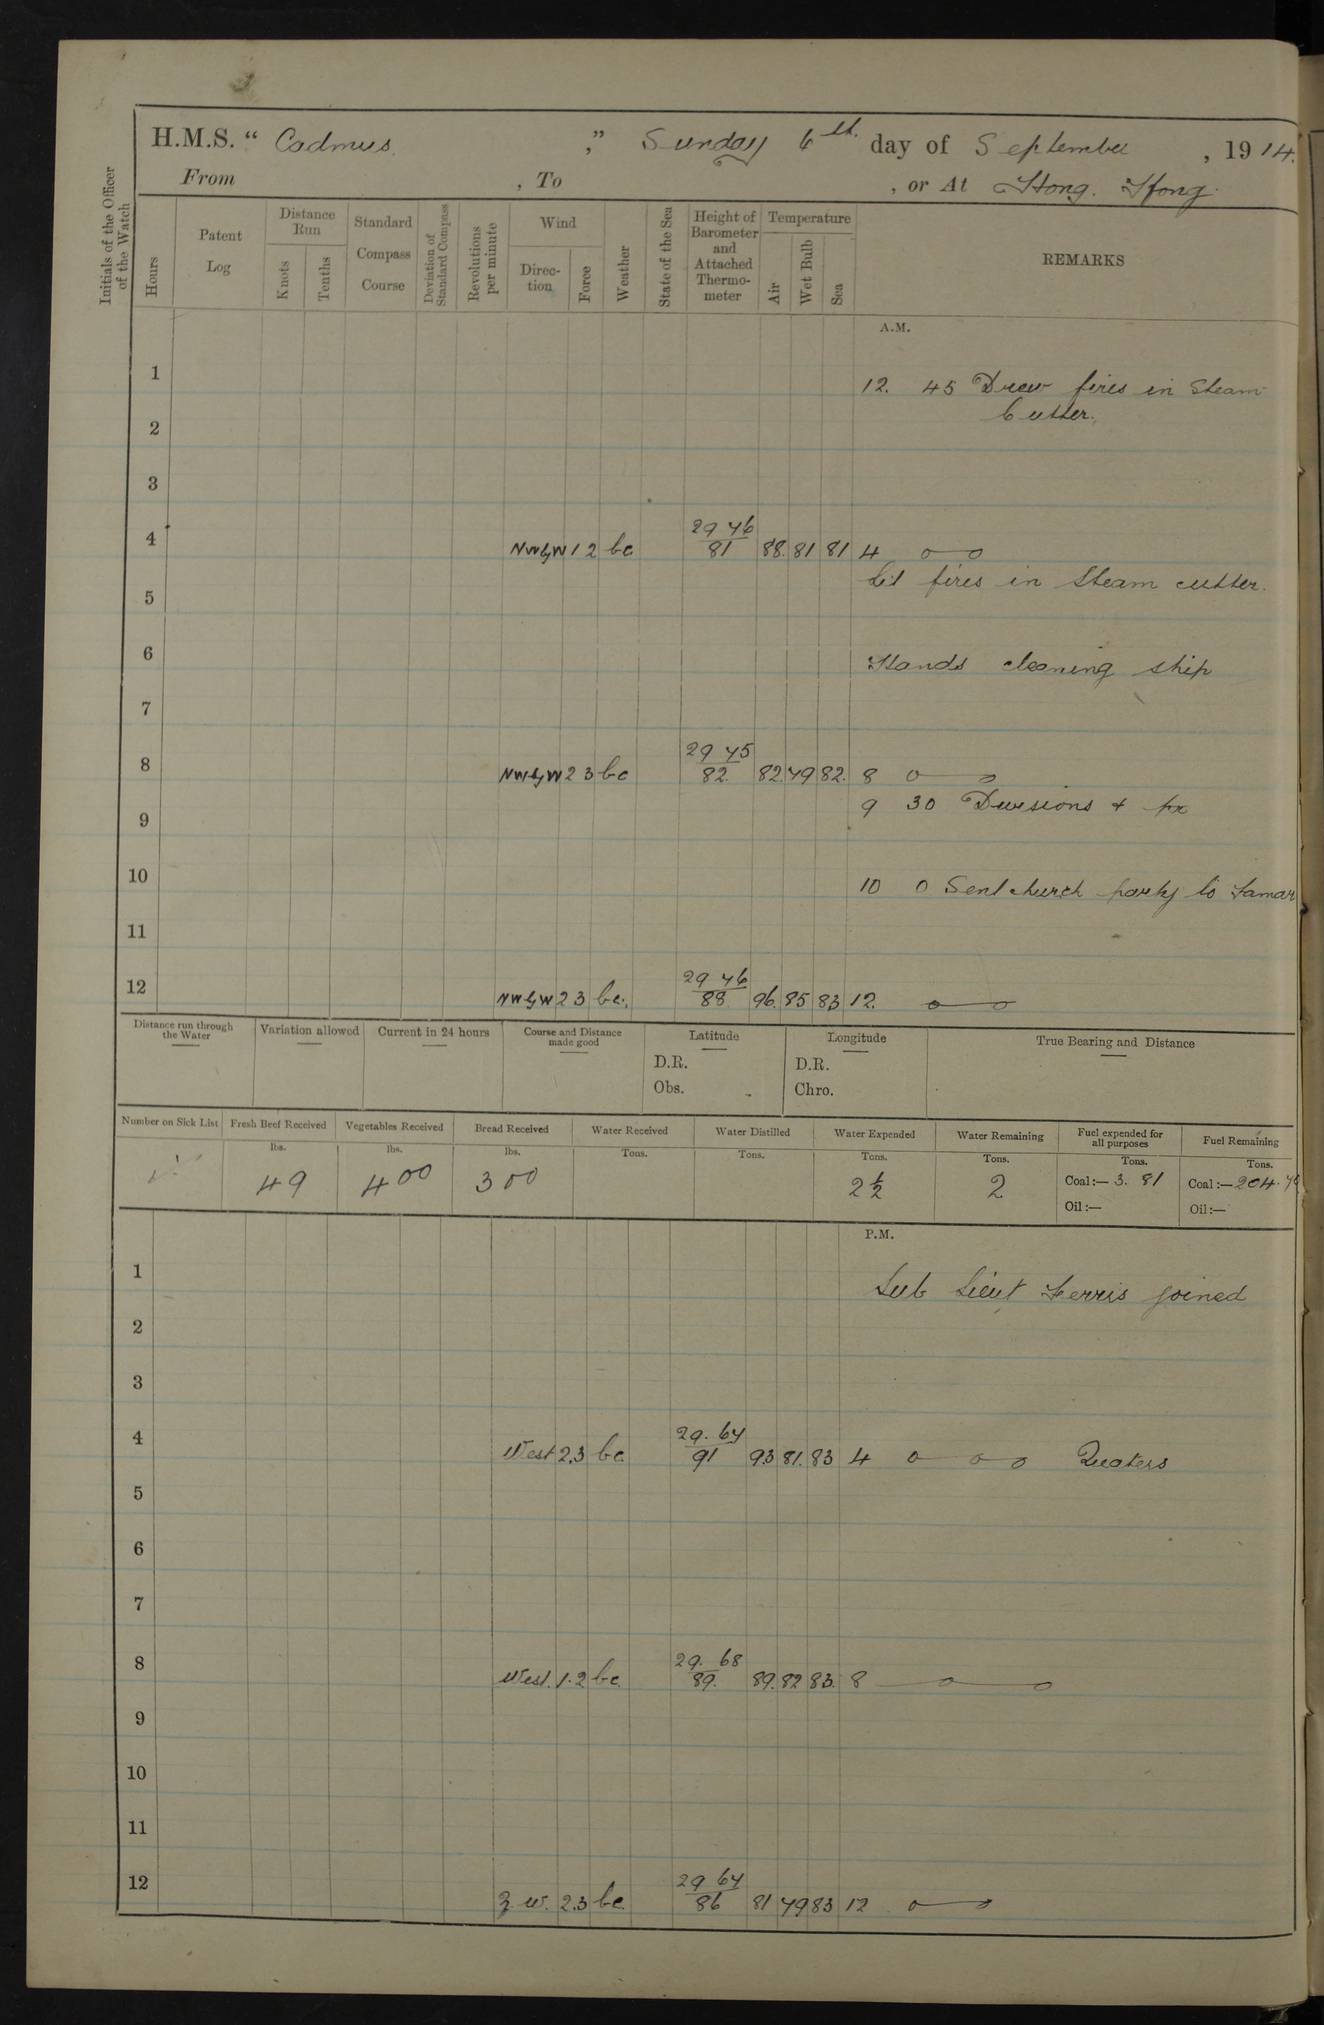 H.M.S. “ Cadmus ” , Sunday 6th. day of September , 1914.
From , To , or At Hong. Kong.
Initials of the Officer of the Watch
Hours
Patent Log
Distance Run
Knots
Tenths
Standard Compass Course
Deviation of Standard Compass
Revolutions per minute
Wind
Direc-tion
Force
Weather
State of the Sea
Height of Barometer and Attached Thermo-meter
Temperature
Air
Wet Bulb
Sea
REMARKS
A.M.
1 12. 45 Drew fires in Steam
Cutter.
2
3
29 76
4 NWbyW 1 2 bc 81 88. 81 81 4
Lit fires in Steam cutter.
5
6 Hands cleaning ship
7
29 75
8 NWbyW 2 3 bc 82. 82 79 82. 8
9 30 Divisions +
9
10 10 0 Sent church party to Tamar
11
29 76
12 NWbyW 2 3 bc. 88 96. 85 83 12.
Distance run through the Water
Variation allowed
Current in 24 hours
Course and Distance made good
Latitude
D.R.
Obs.
Longitude
D.R.
Chro.
True Bearing and Distance
Number on Sick List
Fresh Beef Received
lbs.
49
Vegetables Received
lbs.
400
Bread Received
lbs.
300
Water Received
Tons.
Water Distilled
Tons.
Water Expended
Tons.
2 1/2
Water Remaining
Tons.
2
Fuel expended for all purposes
Tons.
Coal:— 3. 81
Oil:—
Fuel Remaining
Tons.
Coal:— 204.
Oil:—
P.M.
1 Sub Lieut Ferris joined
2
3
29. 67
4 West 2.3 bc 91 93 81. 83 4 Quaters
5
6
7
29. 68
8 West. 1.2 bc. 89. 89. 82 83. 8
9
10
11
29 67
12 2.3 bc. 86 81 79 83 12